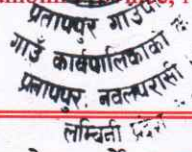 प्रतापपुर गाउँपा
गाउँ कार्यपालिकाको
प्रतापपुर, नवलपरासी
लुम्बिनी प्रदेश